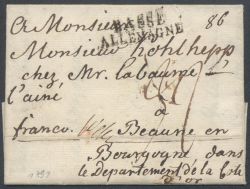 A Monsieur 86
BASSE
ALLEMAGNE
Monsieur Kohlhepp
chez Mr. la baume
l'ainé
à
franco. Beaune en
Bourgogne dans
le Departement de la Cote
d'or
1792